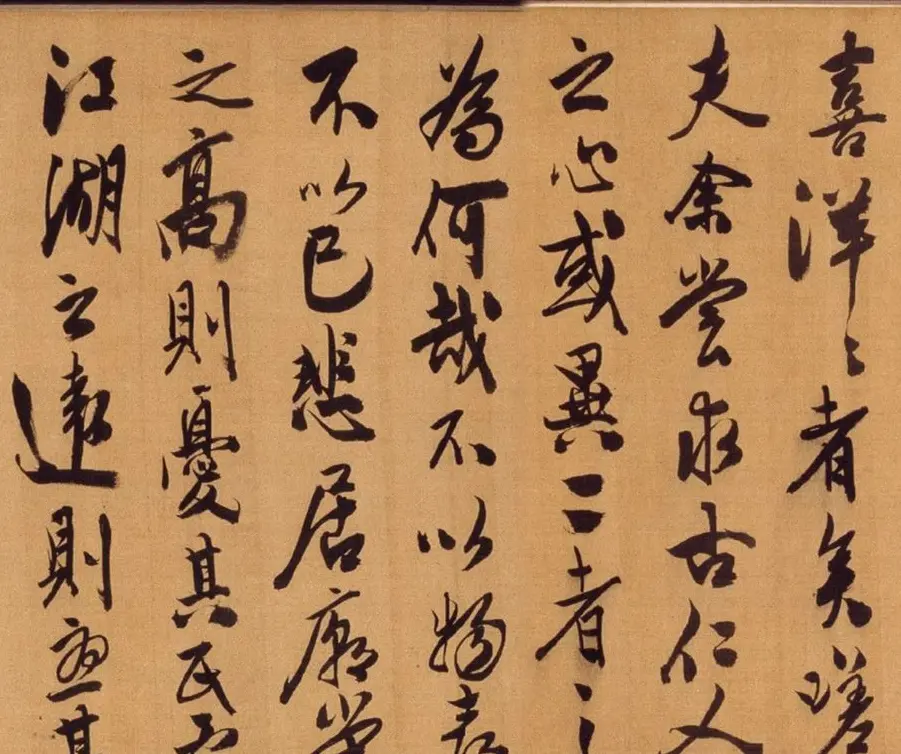 喜洋〻者矣嗟
夫余嘗求古仁人
之心或異二者之
為何哉不以物喜
不以己悲居廟堂
之高則憂其民
江湖之遠則憂其